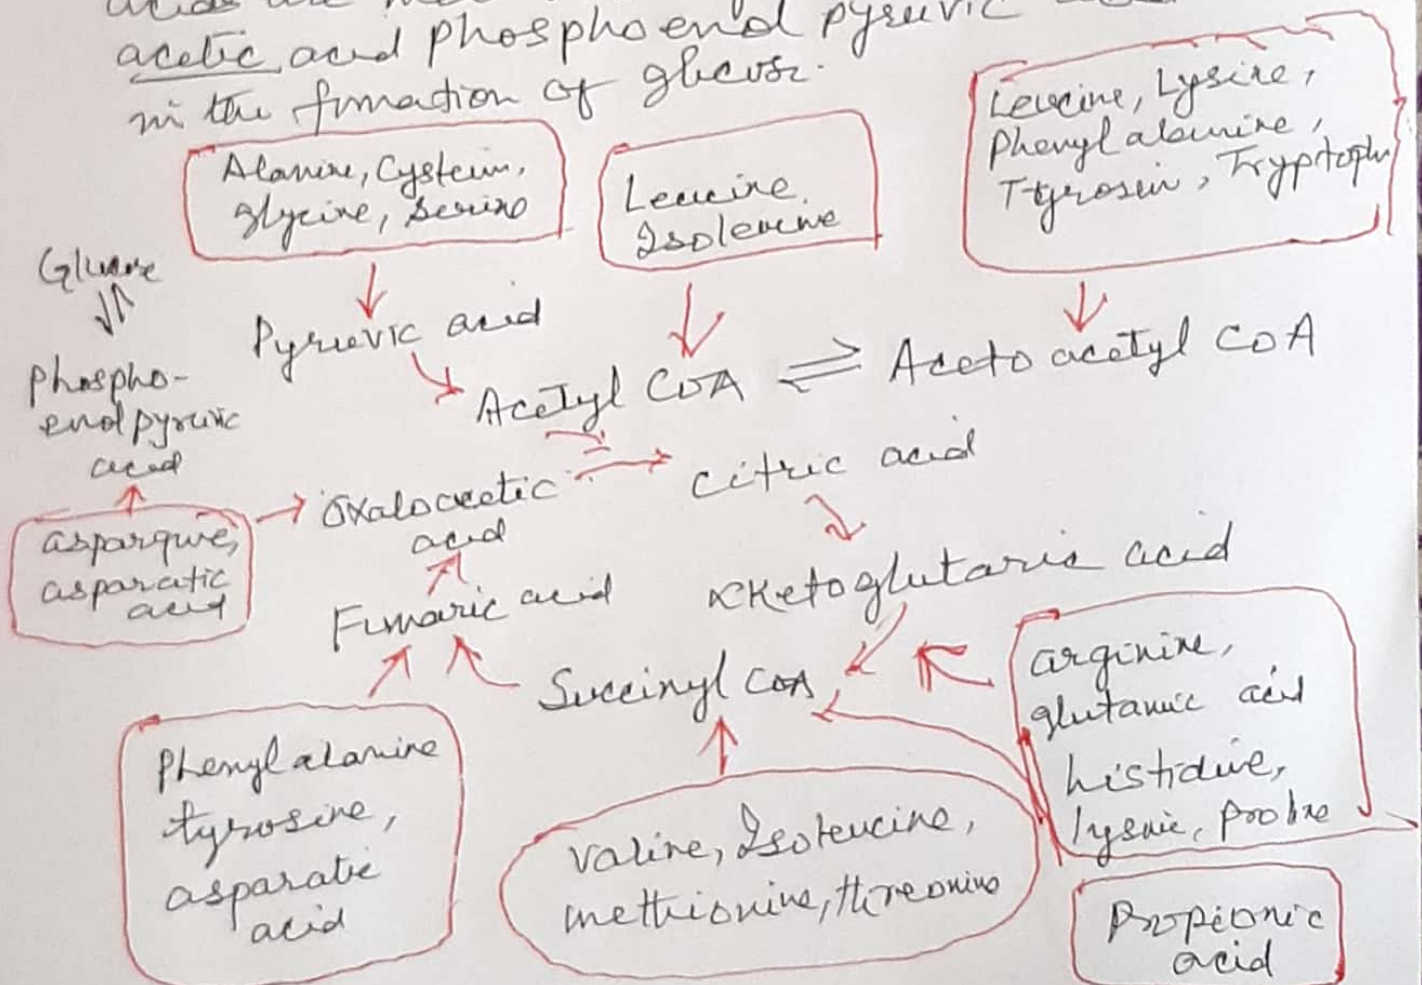 acetic acid phosphoenol pyruvic
in the formation of glucose.
Alanine, Cystein,
glycine, serine
Leucine
Isoleucine
Leucine, Lysine,
Phenyl alanine,
Ttyrosin, Tryptoph
Glucose
Pyruvic acid
Acetyl COA ⇌ Aceto acetyl COA
Phospho-
enol pyruvic
acid
Oxaloacetic
acid
citric acid
asparatic
acid
Fumaric acid
αKetoglutaric acid
Succinyl COA
arginine,
glutamic acid
histidine,
lysine, proline
Phenyl alanine
tyrosine,
asparatic
acid
Valine, Isoleucine,
methionine, threonine
Propionic
acid